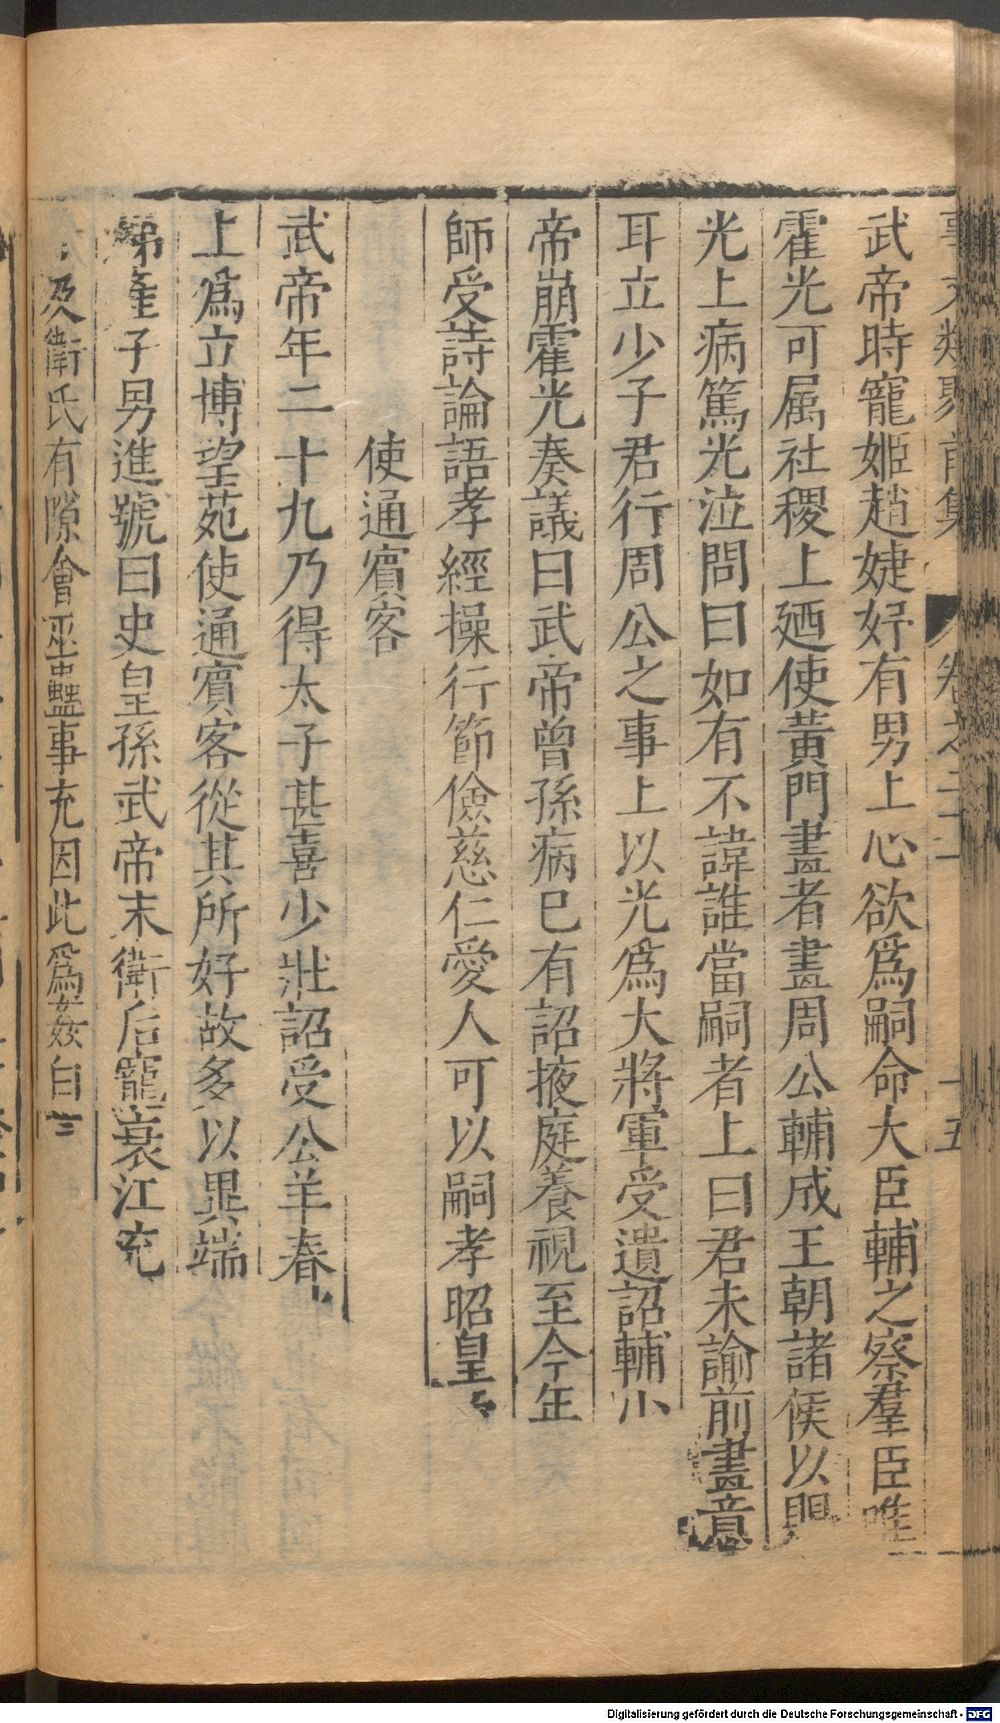 事文類聚前集 卷之二十 十五
武帝時寵姬趙婕妤有男上心欲爲嗣命大臣輔之察羣臣唯
霍光可属社稷上廼使黃門畫者畫周公輔成王朝諸侯以賜
光上病篤光泣問曰如有不諱誰當嗣者上曰君未諭前畫意
耳立少子君行周公之事上以光爲大將軍受遺詔輔少
帝崩霍光奏議曰武帝曾孫病已有詔掖庭養視至今年
師受詩論語孝經操行節儉慈仁愛人可以嗣孝昭皇
使通賓客
武帝年二十九乃得太子甚喜少壯詔受公羊春
上爲立博望苑使通賓客從其所好故多以異端
娣產子男進號曰史皇孫武帝末衛后寵衰江充
及衛氏有隙會巫蠱事充因此爲姦白言
Digitalisierung gefördert durch die Deutsche Forschungsgemeinschaft - DFG